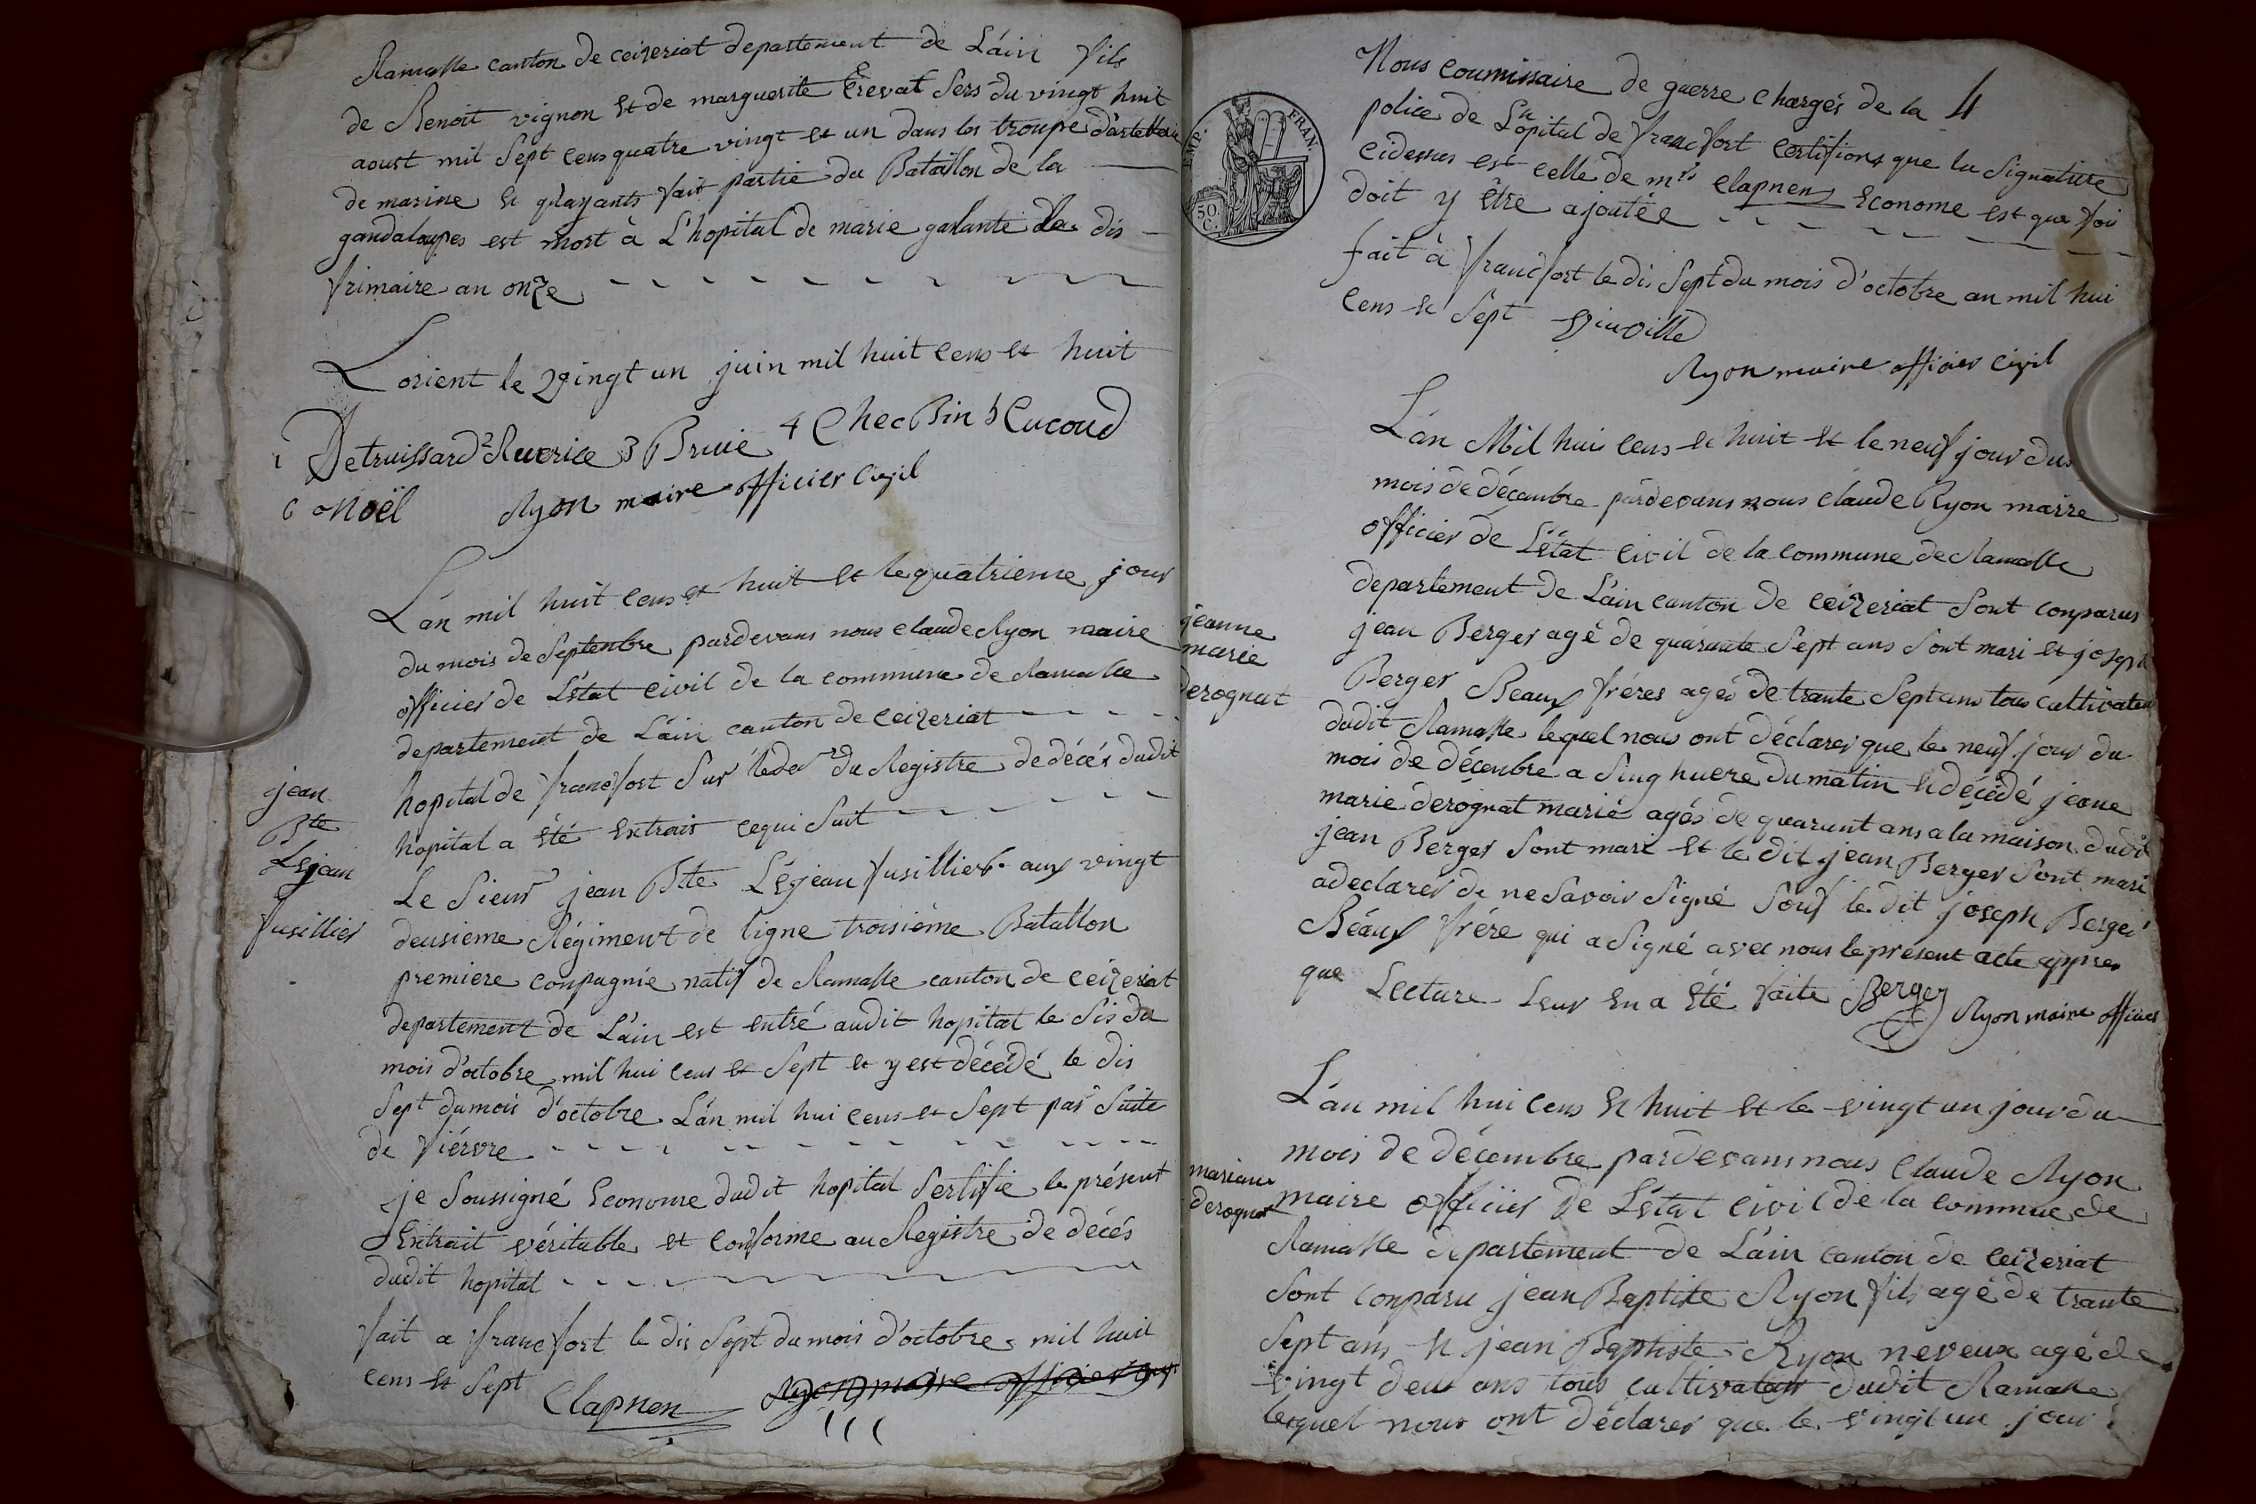 Ramasse canton de ceizeriat departement de L'ain fils
de Benoit vignon et de marguerite Crevat Sers du vingt huit
aoust mil Sept cens quatre vingt et un dans les troupe d'artellerie
de marine et qu'ayants fait partie du Bataillon de la
gaudaloupes est mort à L'hopital de marie galante le dis
frimaire an onze
Lorient le vingt un juin mil huit cens et huit
1 Detruissard 2 Ruerice 3 Bruie 4 ChecBin 5 Cucoud
6 Noël Ryon maire officier civil
L'an mil huit cens et huit et le quatrieme jour
du mois de Septenbre pardevans nous claude Ryon maire
officier de L'état civil de la commune de Ramasse
departement de L'ain canton de ceizeriat
jean
Bte
Lejean
fusillier
hopital de francfort Sur du Registre de décés dudit
hopital a été extrait cequi Suit
Le Sieur jean Bte Léjean fusillier aux vingt
deusieme Régiment de ligne troisiéme Batallon
premiere conpagnie natif de Ramasse canton de ceizeriat
departement de L'ain est entré audit hopital le Sis du
mois d'octobre mil hui cens et Sept et y est décédé le dis
Sept du mois d'octobre L'an mil hui cens et Sept par Suite
de fiérvre
je Soussigné Econome dudit hopital Sertifie le présent
Extrait véritable et conforme au Registre de décés
dudit hopital
fait a francfort le dis Sept du mois d'octobre mil huit
cens et Sept Clapnen Ryon maire officier civil
4
EMP. FRAN.
50 C.
Nous commissaire de guerre chargés de la
police de L'hopital de francfort certifions que la Signature
cidessus est celle de mr. clapnen Econome est que foi
doit y être ajoutée
fait à francfort le dis Sept du mois d'octobre an mil hui
cens et Sept Vinville
Ryon maire officier civil
L'an Mil hui cens et huit et le neuf jour du
mois de décanbre pardevans nous claude Ryon maire
officier de L'état civil de la commune de Ramasse
departement de L'ain canton de ceizeriat Sont conparus
jeanne
marie
derognat
jean Berger agé de quarante Sept ans Sont mari et joseph
Berger Beaux fréres agés de trante Sept ans tous cultivateur
dudit Ramasse lequel nous ont déclarer que le neuf jour du
mois de décenbre a Sinq huere du matin et décédé jeane
marie derognat marié agés de quarant ans a la maison dudit
jean Berger Sont mari et le dit jean Berger Sont mari
a declarer de ne Savoir Signé Souf le dit joseph Berger
Béaux frére qui a Signé avec nous le présent acte appres
que Lecture Leur en a été faite Berger Ryon maire officier
L'an mil hui cens et huit et le vingt un jour du
mois de décembre pardevans nous Claude Ryon
mariane
derognat
maire officier de L'état civil de la commune de
Ramasse departement de L'ain canton de ceizeriat
Sont conparu jean Baptiste Ryon fils agé de trante
Sept ans et jean Baptiste Ryon néveux agé de
vingt deux ans tous cultivateur dudit Ramasse
lesquel nous ont déclarer que le vingt un jour